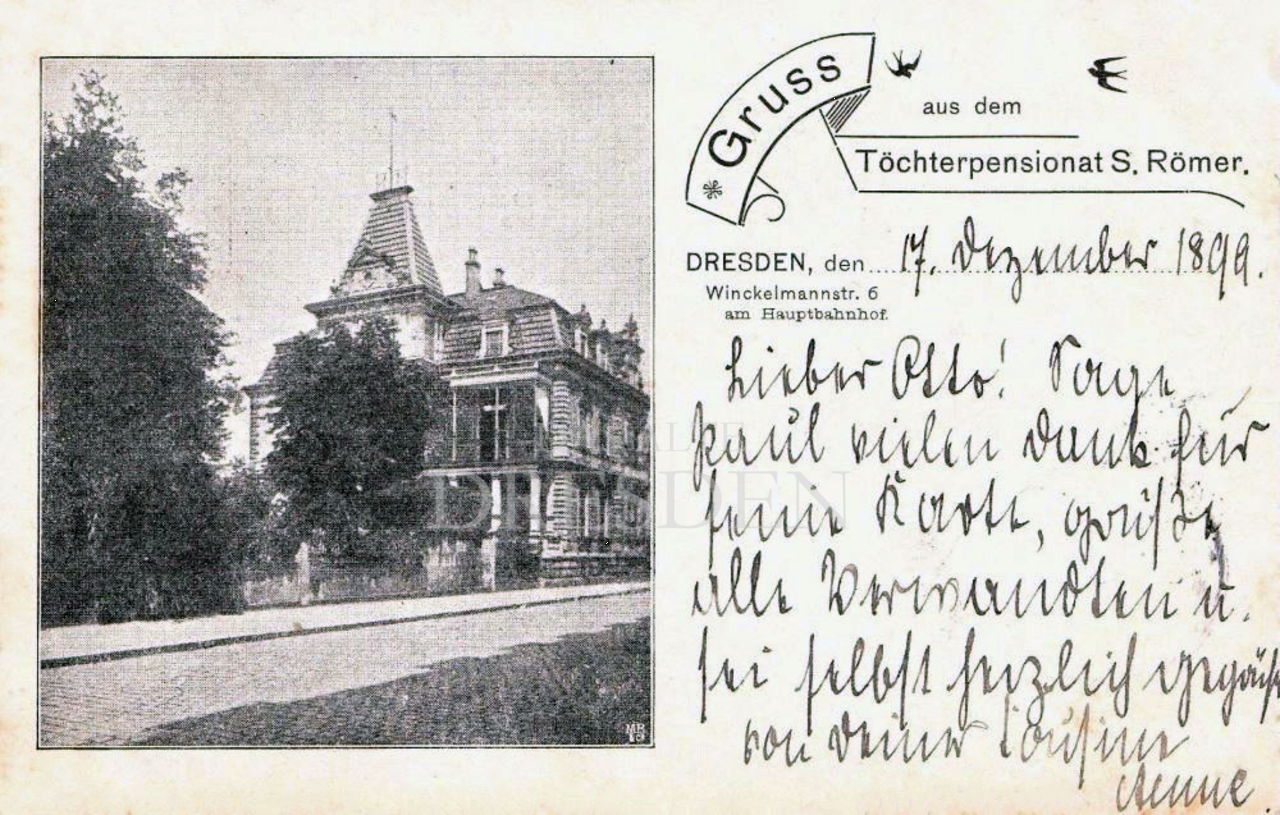 Gruss
aus dem
Töchterpensionat S. Römer.
DRESDEN, den 17. Dezember 1899.
Winckelmannstr. 6
am Hauptbahnhof.
Lieber Otto! Sage
Paul vielen Dank für
seine Karte, grüße
alle Verwandten u.
sei selbst herzlich gegrüßt
von Deiner Cousine
Aenne.
DRESDEN